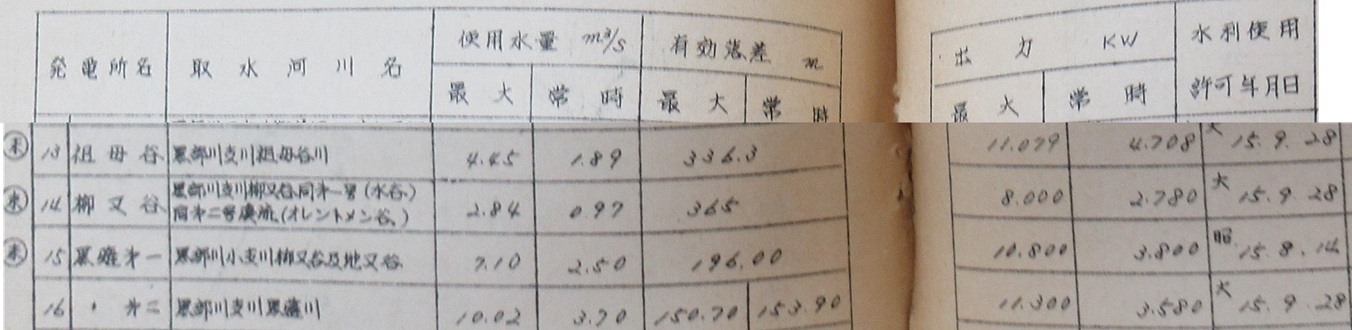 発電所名 取水河川名 使用水量 m³/s 有効落差 m 出力 KW 水利使用
最大 常時 最大 常時 最大 常時 許可年月日
未 13 祖母谷 黒部川支川祖母谷川 4.45 1.89 336.3 11.079 4.708 大 15.9.28
未 14 柳又谷 黒部川支川柳又谷同第一号(水谷)
同第二号渓流(オレントメン谷) 2.84 0.97 365 8.000 2.780 大 15.9.28
未 15 黒薙第一 黒部川小支川柳又谷及北又谷 7.10 2.50 196.00 10.800 3.800 昭 15.8.14
16 〃 第二 黒部川支川黒薙川 10.02 3.70 150.70 153.90 11.300 3.580 大 15.9.28